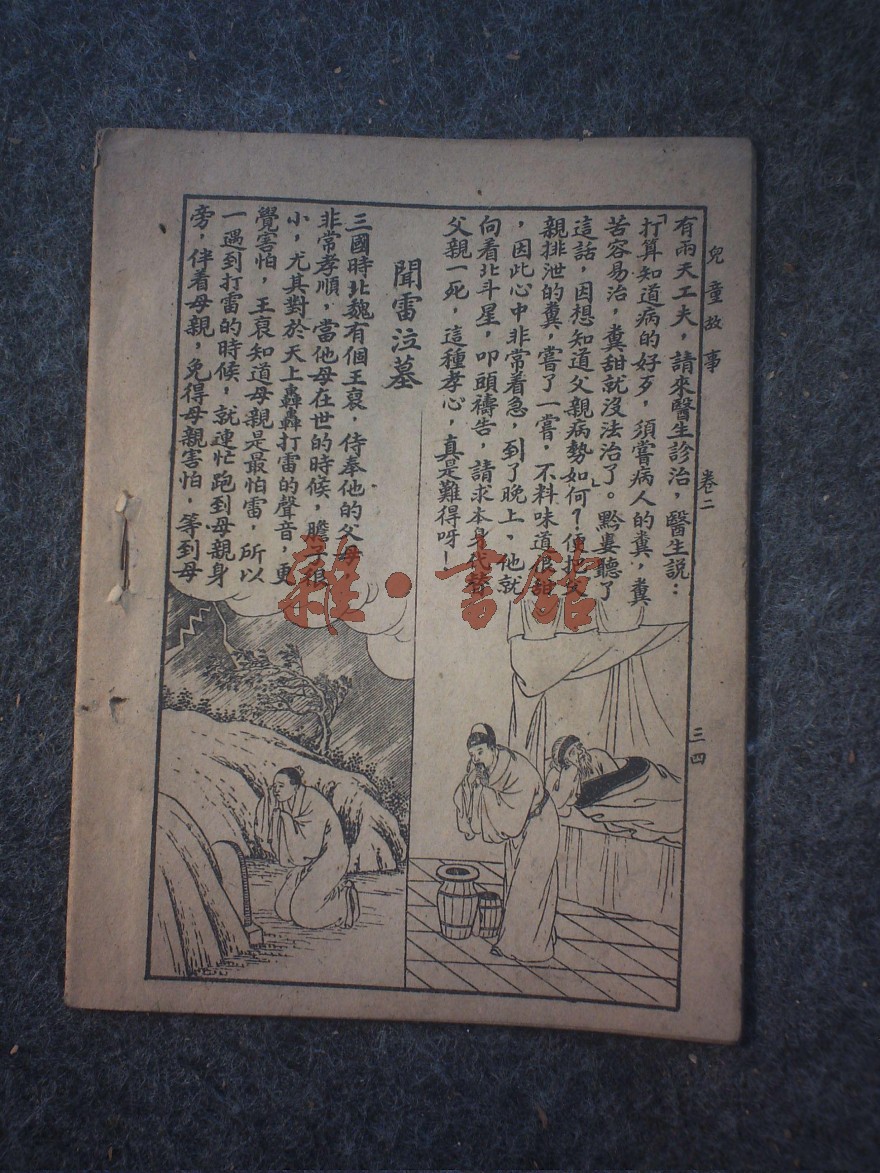 兒童故事　卷二　三四
有兩天工夫，請來醫生診治，醫生説：
「打算知道病的好歹，須嘗病人的糞，糞
苦容易治，糞甜就沒法治了。」黔婁聽了
這話，因想知道父親病勢如何？便把父
親排泄的糞，嘗了一嘗，不料味道很甜
，因此心中非常着急，到了晚上，他就
向着北斗星，叩頭禱告，請求本身代替
父親一死，這種孝心，真是難得呀！
聞雷泣墓
三國時北魏有個王裒，侍奉他的父母
非常孝順，當他母在世的時候，膽子很
小，尤其對於天上轟轟打雷的聲音，更
覺害怕，王裒知道母親是最怕雷，所以
一遇到打雷的時候，就連忙跑到母親身
旁，伴着母親，免得母親害怕，等到母
雜·書館